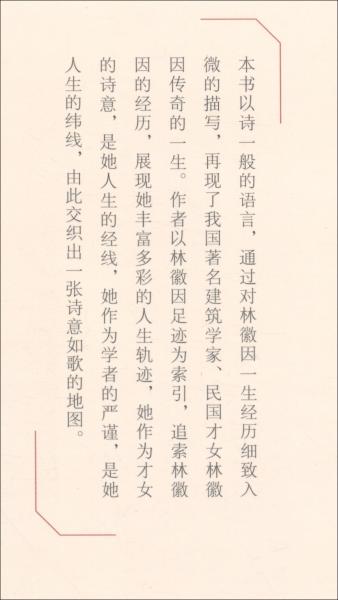 本书以诗一般的语言，通过对林徽因一生经历细致入
微的描写，再现了我国著名建筑学家、民国才女林徽
因传奇的一生。作者以林徽因足迹为索引，追索林徽
因的经历，展现她丰富多彩的人生轨迹，她作为才女
的诗意，是她人生的经线，她作为学者的严谨，是她
人生的纬线，由此交织出一张诗意如歌的地图。